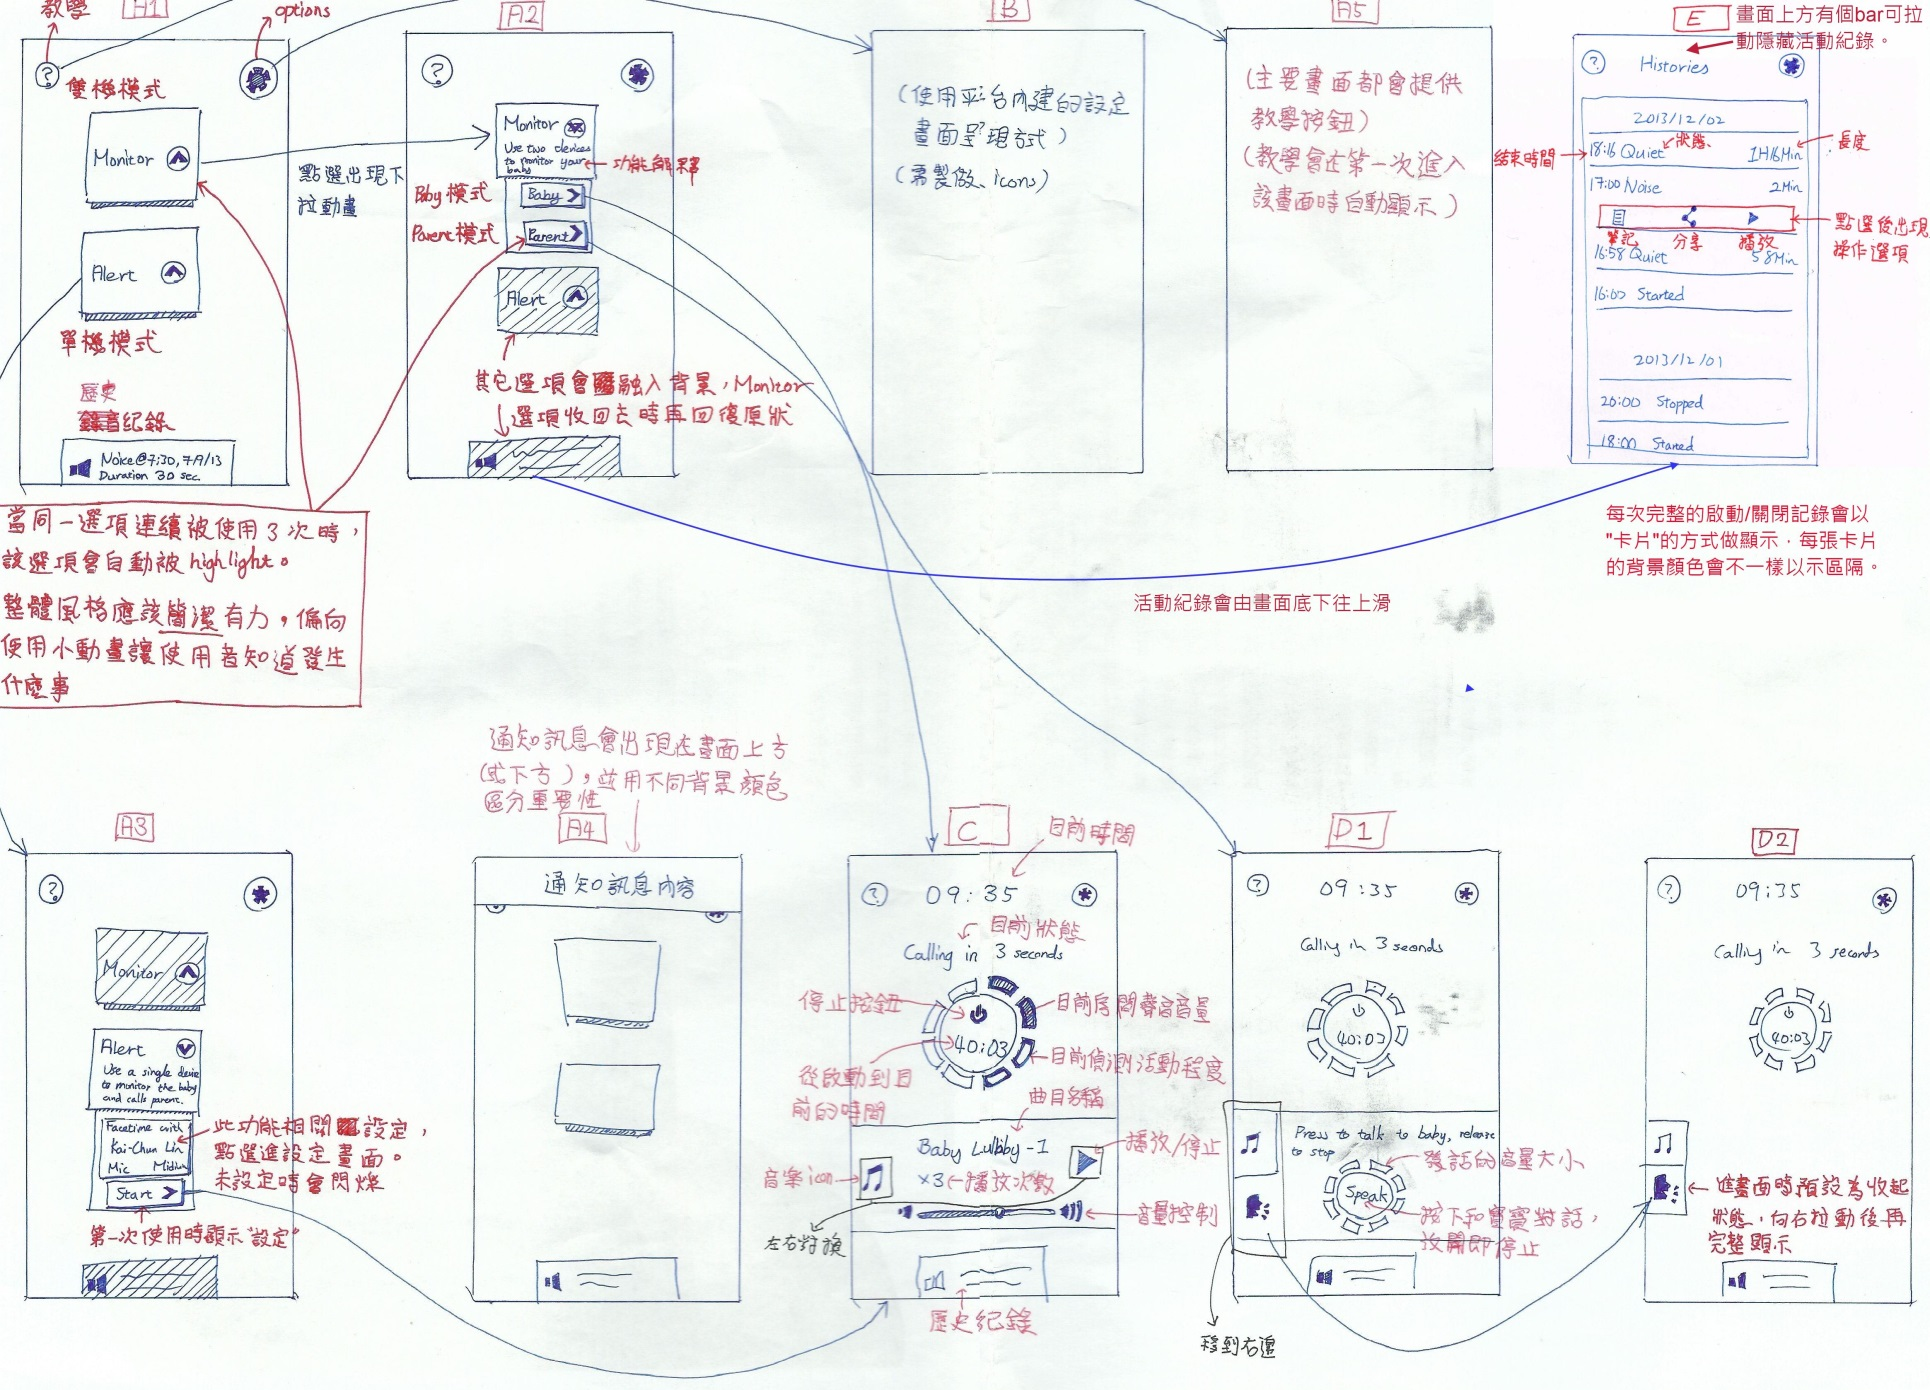 教學
A1
options
?
雙機模式
Monitor
Alert
單機模式
歷史
紀錄
Noice@7:30, 7/9/13
Duration 30 sec.
點選出現下
拉動畫
當同一選項連續被使用3次時，
該選項會自動被highlight。
整體風格應該簡潔有力，偏向
使用小動畫讓使用者知道發生
什麼事
A2
?
Monitor
Use two devices
to monitor your
baby
功能解釋
Baby模式
Baby
Parent模式
Parent
Alert
其它選項會融入背景，Monitor
選項收回去時再回復原狀
B
(使用平台內建的設定
畫面呈現方式)
(需製做 icons)
A5
(主要畫面都會提供
教學按鈕)
(教學會在第一次進入
該畫面時自動顯示)
E
畫面上方有個bar可拉
動隱藏活動紀錄。
?
Histories
2013/12/02
狀態
結束時間
18:16 Quiet 1H16Min
長度
17:00 Noise 2Min
筆記 分享 播放
點選後出現
操作選項
16:58 Quiet 58Min
16:00 Started
2013/12/01
20:00 Stopped
18:00 Started
每次完整的啟動/關閉記錄會以
"卡片"的方式做顯示，每張卡片
的背景顏色會不一樣以示區隔。
活動紀錄會由畫面底下往上滑
A3
?
Monitor
Alert
Use a single device
to monitor the baby
and calls parent.
Facetime with
Kai-Chun Lin
Mic Midium
Start
此功能相關設定，
點選進設定畫面。
未設定時會閃爍
第一次使用時顯示"設定"
通知訊息會出現在畫面上方
(或下方)，並用不同背景顏色
區分重要性
A4
通知訊息內容
C
目前時間
?
09:35
目前狀態
Calling in 3 seconds
停止按鈕
目前房間聲音音量
40:03
目前偵測活動程度
從啟動到目
前的時間
曲目名稱
Baby Lullaby-1
播放/停止
音樂icon
x3
播放次數
音量控制
左右對換
歷史紀錄
D1
?
09:35
Calling in 3 seconds
40:03
Press to talk to baby, release
to stop
發話的音量大小
Speak
按下和寶寶對話，
放開即停止
移到右邊
D2
?
09:35
Calling in 3 seconds
40:03
進畫面時預設為收起
狀態，向右拉動後再
完整顯示